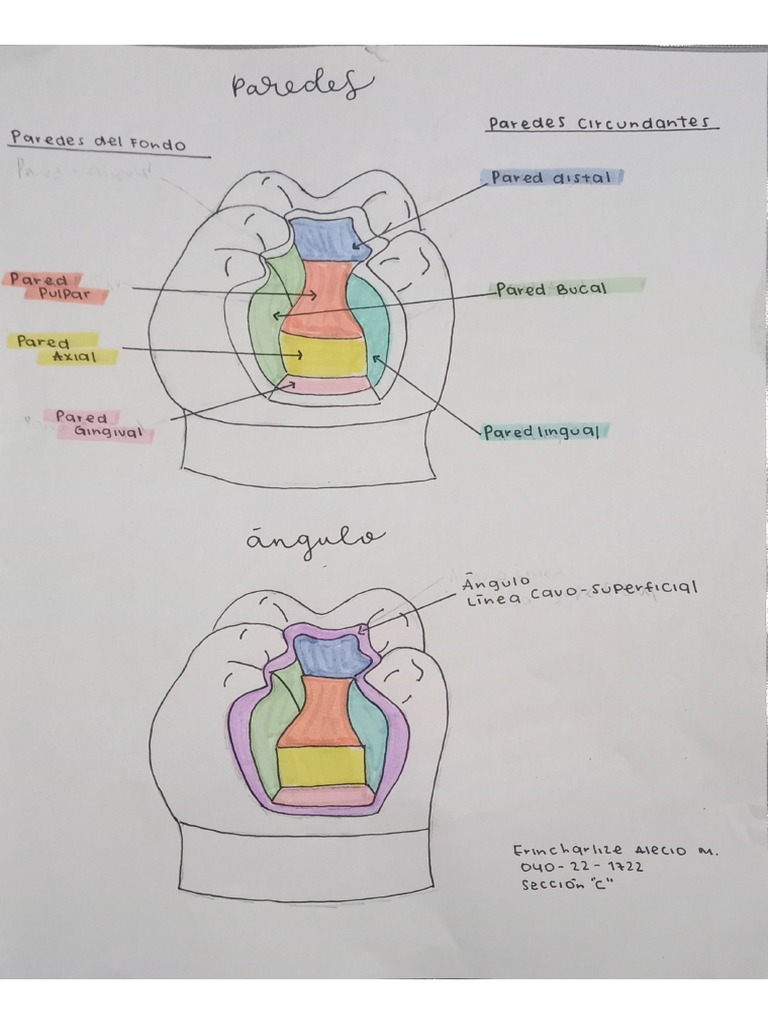 Paredes
Paredes del Fondo
Paredes circundantes
Pared distal
Pared
Pulpar
Pared Bucal
Pared
Axial
Pared
Gingival
Pared lingual
ángulo
Ángulo
Línea cavo-superficial
Erincharlize Alecio M.
040-22-1722
Sección "C"